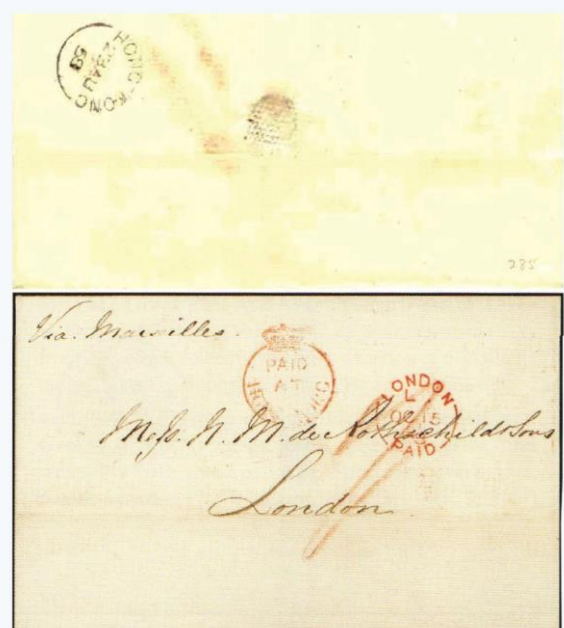 HONG-KONG
AU
285
Via. Marseilles.
PAID
AT
HONG KONG
LONDON
L
OC 15
PAID
Mess. N. M. de Rothschild & Sons
London